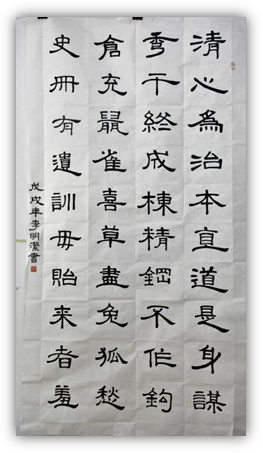 清心為治本直道是身謀
秀干終成棟精鋼不作鉤
倉充鼠雀喜草盡兔狐愁
史冊有遺訓毋貽来者羞
戊戌年李明潔書